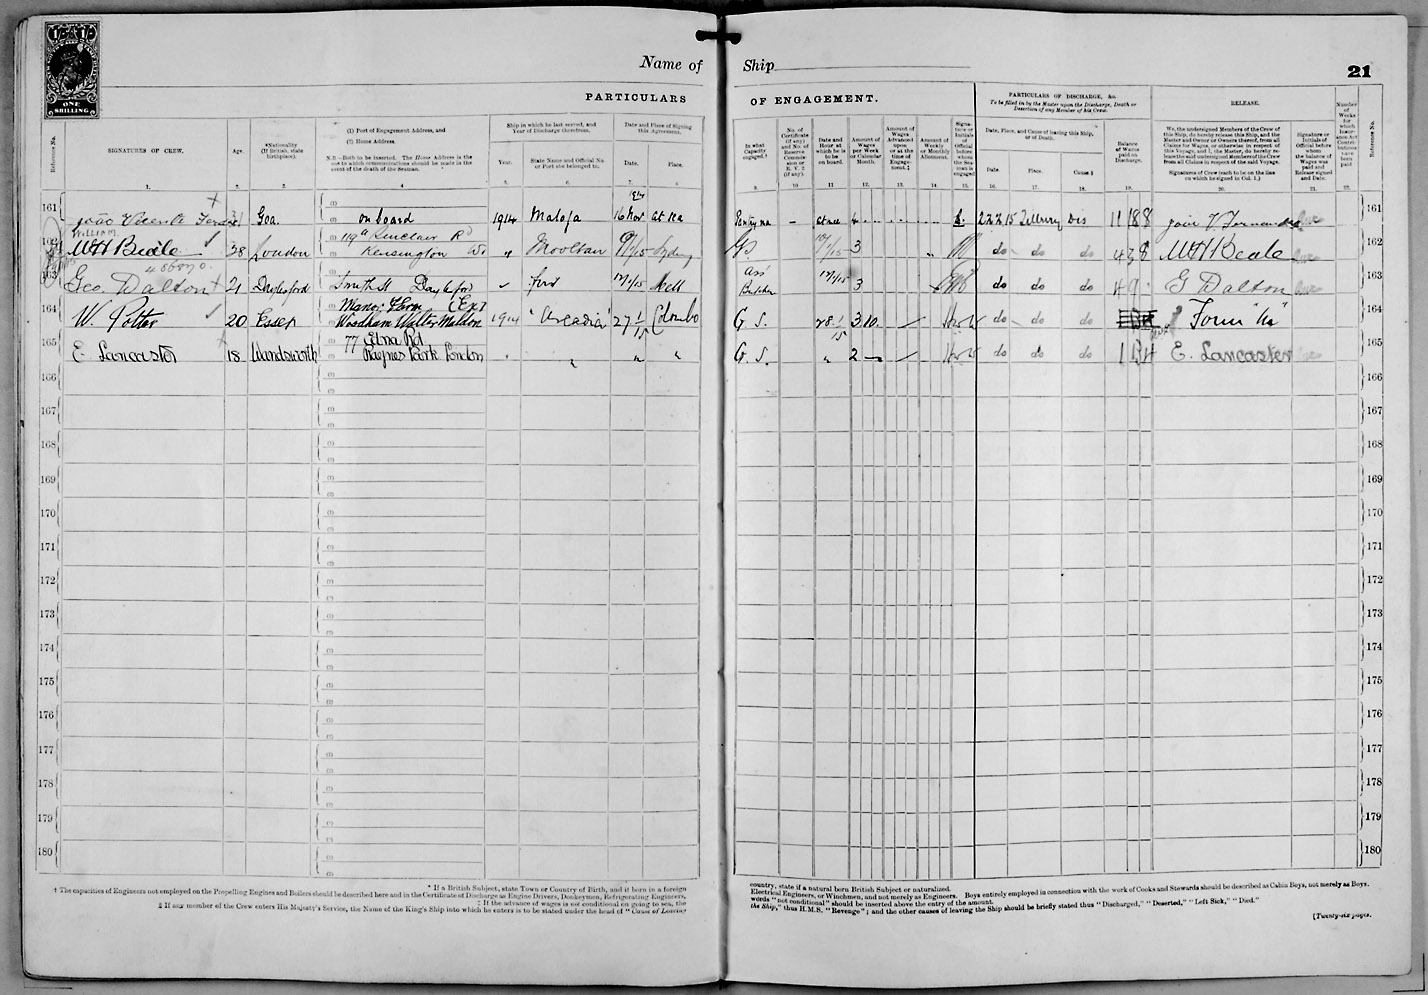 1/- 1/-
ONE
SHILLING
Name of Ship
21
PARTICULARS OF ENGAGEMENT.
PARTICULARS OF DISCHARGE, &c.
To be filled in by the Master upon the Discharge, Death or
Desertion of any Member of his Crew.
RELEASE.
Reference No.
SIGNATURES OF CREW.
Age.
*Nationality
(If British, state
birthplace).
(1) Port of Engagement Address, and
(2) Home Address.
N.B.—Both to be inserted. The Home Address is the
one to which communications should be made in the
event of the death of the Seaman.
Ship in which he last served, and
Year of Discharge therefrom.
Year.
State Name and Official No.
or Port she belonged to.
Date and Place of Signing
this Agreement.
Date.
Place.
In what
Capacity
engaged.†
No. of
Certificate
(if any)
and No. of
Reserve
Commis-
sion or
R. V. 2
(if any).
Date and
Hour at
which he is
to be
on board.
Amount of
Wages
per Week
or Calendar
Month.
Amount of
Wages
Advanced
upon
or at the
time of
Engage-
ment.‡
Amount of
Weekly
or Monthly
Allotment.
Signa-
ture or
Initials
of
Official
before
whom
the Sea-
man is
engaged
Date, Place, and Cause of leaving this Ship,
or of Death.
Date.
Place.
Cause.§
Balance
of Wages
paid on
Discharge.
We, the undersigned Members of the Crew of
this Ship, do hereby release this Ship, and the
Master and Owner or Owners thereof, from all
Claims for Wages, or otherwise in respect of
this Voyage, and I, the Master, do hereby re-
lease the said undersigned Members of the Crew
from all Claims in respect of the said Voyage.
Signatures of Crew (each to be on the line
on which he signed in Col. 1.)
Signature or
Initials of
Official before
whom
the balance of
Wages was
paid and
Release signed
and Date.
Number
of
Weeks
for
which
Insur-
ance Act
Contri-
butions
have
been
paid
Reference No.
1. 2. 3. 4 5. 6. 7. 8. 9. 10 11. 12. 13. 14. 15. 16. 17. 18. 19. 20. 21. 22.
161 João Vicente Goa on board 1914 Maloja 16 Nov at sea Pantry - at once 22 2 15 Tilbury Dis 11 18 8 V. Fernandes 161
WILLIAM
162 W H Beale 28 London 119a Sinclair Rd Kensington W. " Mooltan 9/1/15 Sydney GS 3 " do do do 4 3 8 W H Beale 162
163 Geo. Dalton 21 Daylesford Smith St Daylesford first Melb Ass Butcher 3 do do do G Dalton 163
164 W. Potter 20 Essex Manor Farm Woodham Walter Maldon 1914 "Arcadia" 27 1/15 Colombo G. S. 28 1/15 3.10. — do do do Form 164
165 E Lancaster 18 Wandsworth 77 Edna Rd Raynes Park London " " " G. S. " 2 — — do do do E. Lancaster 165
166 166
167 167
168 168
169 169
170 170
171 171
172 172
173 173
174 174
175 175
176 176
177 177
178 178
179 179
180 180
* If a British Subject, state Town or Country of Birth, and if born in a foreign country, state if a natural born British Subject or naturalized.
† The capacities of Engineers not employed on the Propelling Engines and Boilers should be described here and in the Certificate of Discharge as Engine Drivers, Donkeymen, Refrigerating Engineers, Electrical Engineers, or Winchmen, and not merely as Engineers. Boys entirely employed in connection with the work of Cooks and Stewards should be described as Cabin Boys, not merely as Boys.
‡ If the advance of wages is not conditional on going to sea, the words "not conditional" should be inserted above the entry of the amount.
§ If any member of the Crew enters His Majesty's Service, the Name of the King's Ship into which he enters is to be stated under the head of "Cause of Leaving the Ship," thus H.M.S. "Revenge"; and the other causes of leaving the Ship should be briefly stated thus "Discharged," "Deserted," "Left Sick," "Died."
[Twenty-six pages.